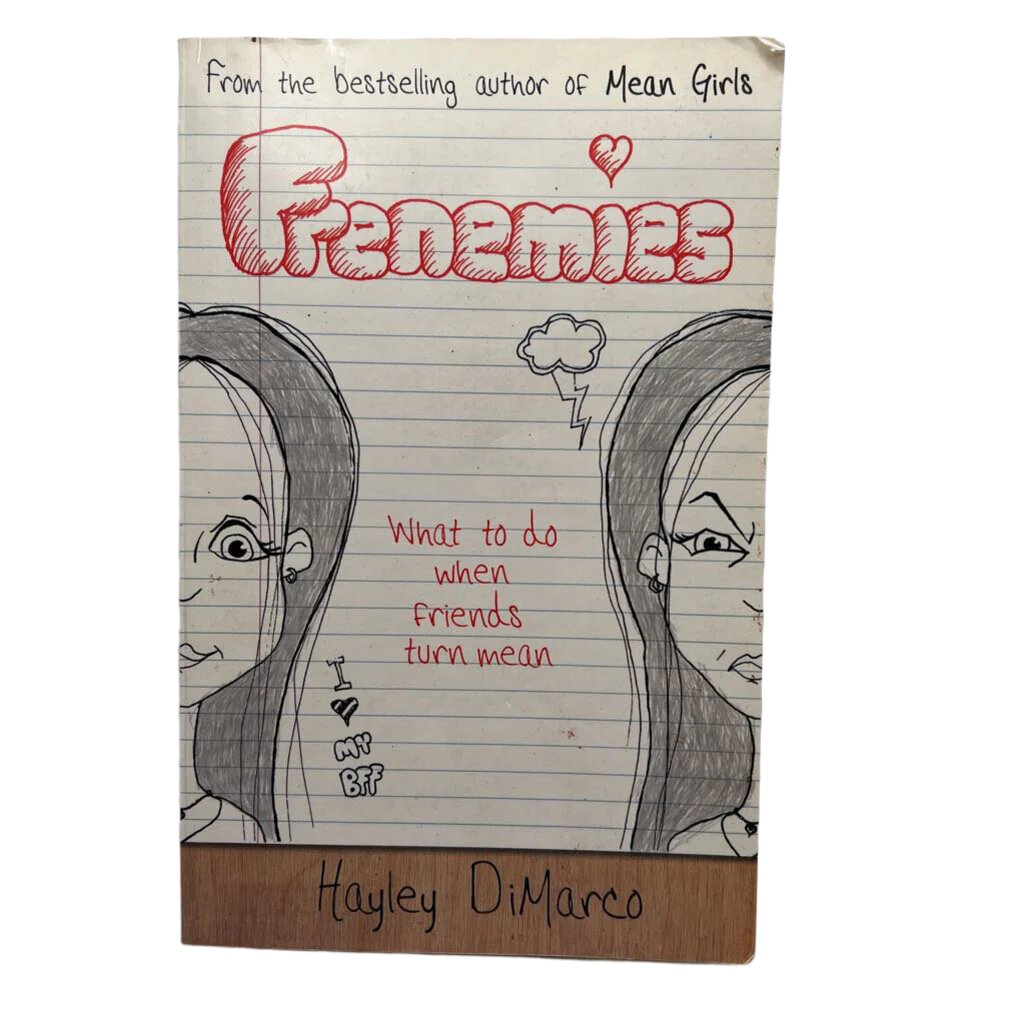 From the bestselling author of Mean Girls
Frenemies
What to do
when
friends
turn mean
I
♥
MY
BFF
Hayley DiMarco